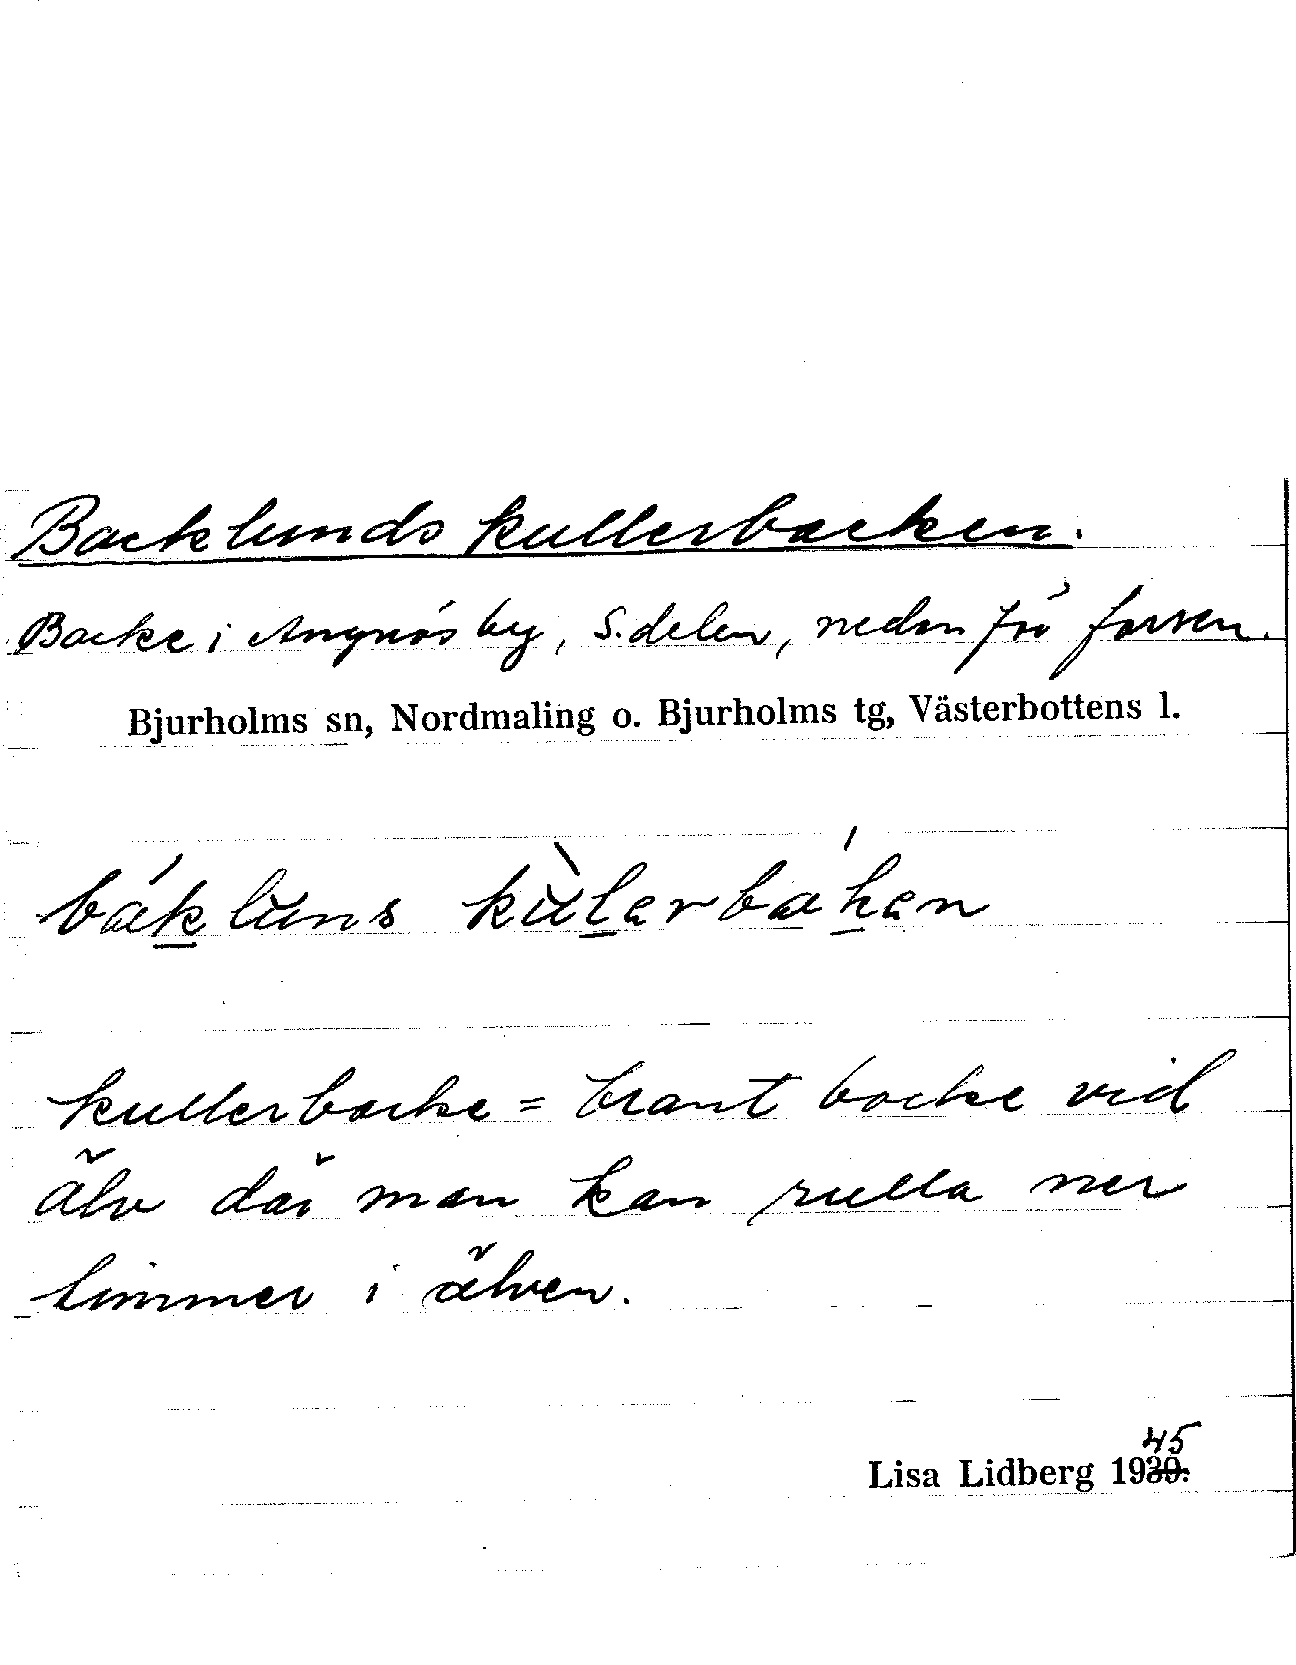 Backlunds kullerbacken.
Backe i Angnäs by, S. delen, nedanför forsen.
Bjurholms sn, Nordmaling o. Bjurholms tg, Västerbottens l.
kullerbacke = brant backe vid
älv där man kan rulla ner
timmer i älven.
Lisa Lidberg 1945